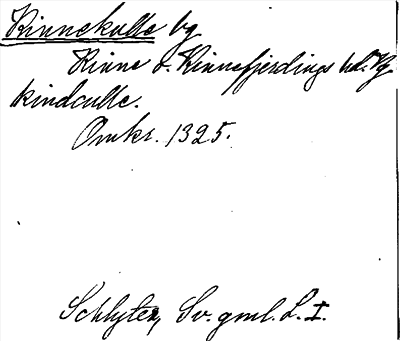 Kinnekulle bg
Kinne o. Kinnefjerdings hd. Vg.
kindculle.
Omkr. 1325.
Schlyter, Sv. gml. L. I.